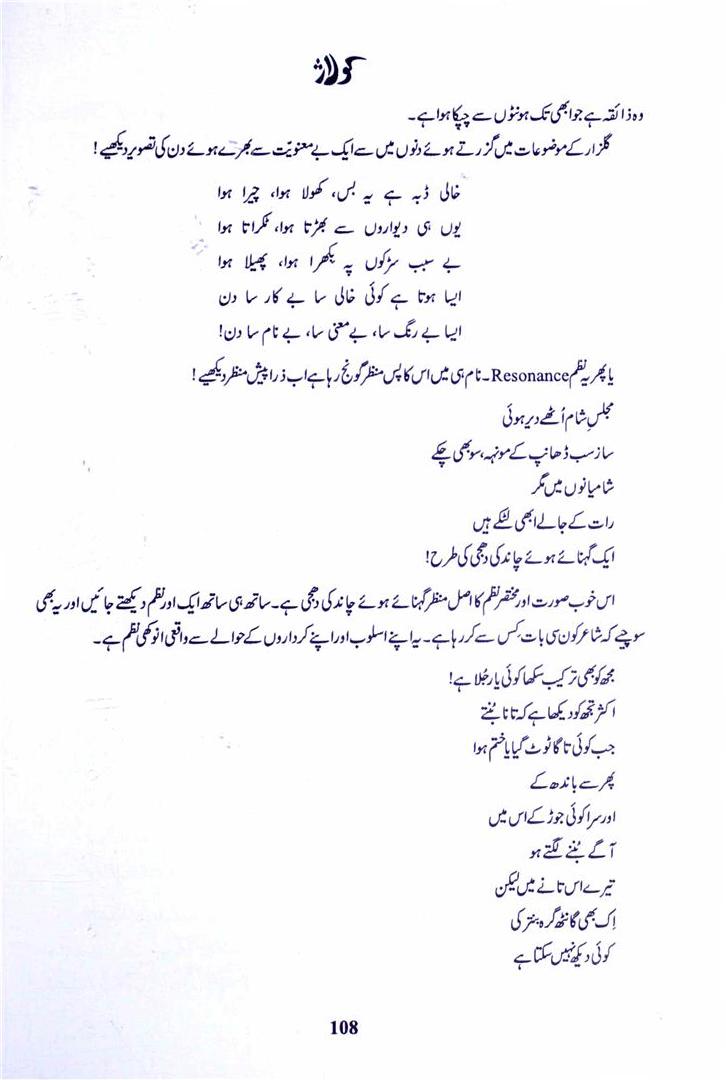 کولاژ
وہ ذائقہ ہے جو ابھی تک ہونٹوں سے چپکا ہوا ہے۔
گلزار کے موضوعات میں گزرتے ہوئے دنوں میں سے ایک بے معنویّت سے بھرے ہوئے دن کی تصویر دیکھیے!
خالی ڈبہ ہے یہ بس، کھولا ہوا، چیرا ہوا
یوں ہی دیواروں سے بھڑتا ہوا، ٹکراتا ہوا
بے سبب سڑکوں پہ بکھرا ہوا، پھیلا ہوا
ایسا ہوتا ہے کوئی خالی سا بے کار سا دن
ایسا بے رنگ سا، بے معنی سا، بے نام سا دن!
یا پھر یہ نظم Resonance۔ نام ہی میں اس کا پس منظر گونج رہا ہے اب ذرا پیش منظر دیکھیے!
مجلسِ شام اُٹھے دیر ہوئی
ساز سب ڈھانپ کے مونہہ، سو بھی چکے
شامیانوں میں مگر
رات کے جالے ابھی لٹکے ہیں
ایک گہنائے ہوئے چاند کی دھجی کی طرح!
اس خوب صورت اور مختصر نظم کا اصل منظر گہنائے ہوئے چاند کی دھجی ہے۔ ساتھ ہی ساتھ ایک اور نظم دیکھتے جائیں اور یہ بھی
سوچیے کہ شاعر کون سی بات کس سے کر رہا ہے۔ یہ اپنے اسلوب اور اپنے کرداروں کے حوالے سے واقعی انوکھی نظم ہے۔
مجھ کو بھی ترکیب سکھا کوئی یار جُلاہے!
اکثر تجھ کو دیکھا ہے کہ تانا بُنتے
جب کوئی تاگا ٹوٹ گیا یا ختم ہوا
پھر سے باندھ کے
اور سرا کوئی جوڑ کے اس میں
آگے بُننے لگتے ہو
تیرے اس تانے میں لیکن
اِک بھی گانٹھ گرہ بنتر کی
کوئی دیکھ نہیں سکتا ہے
108